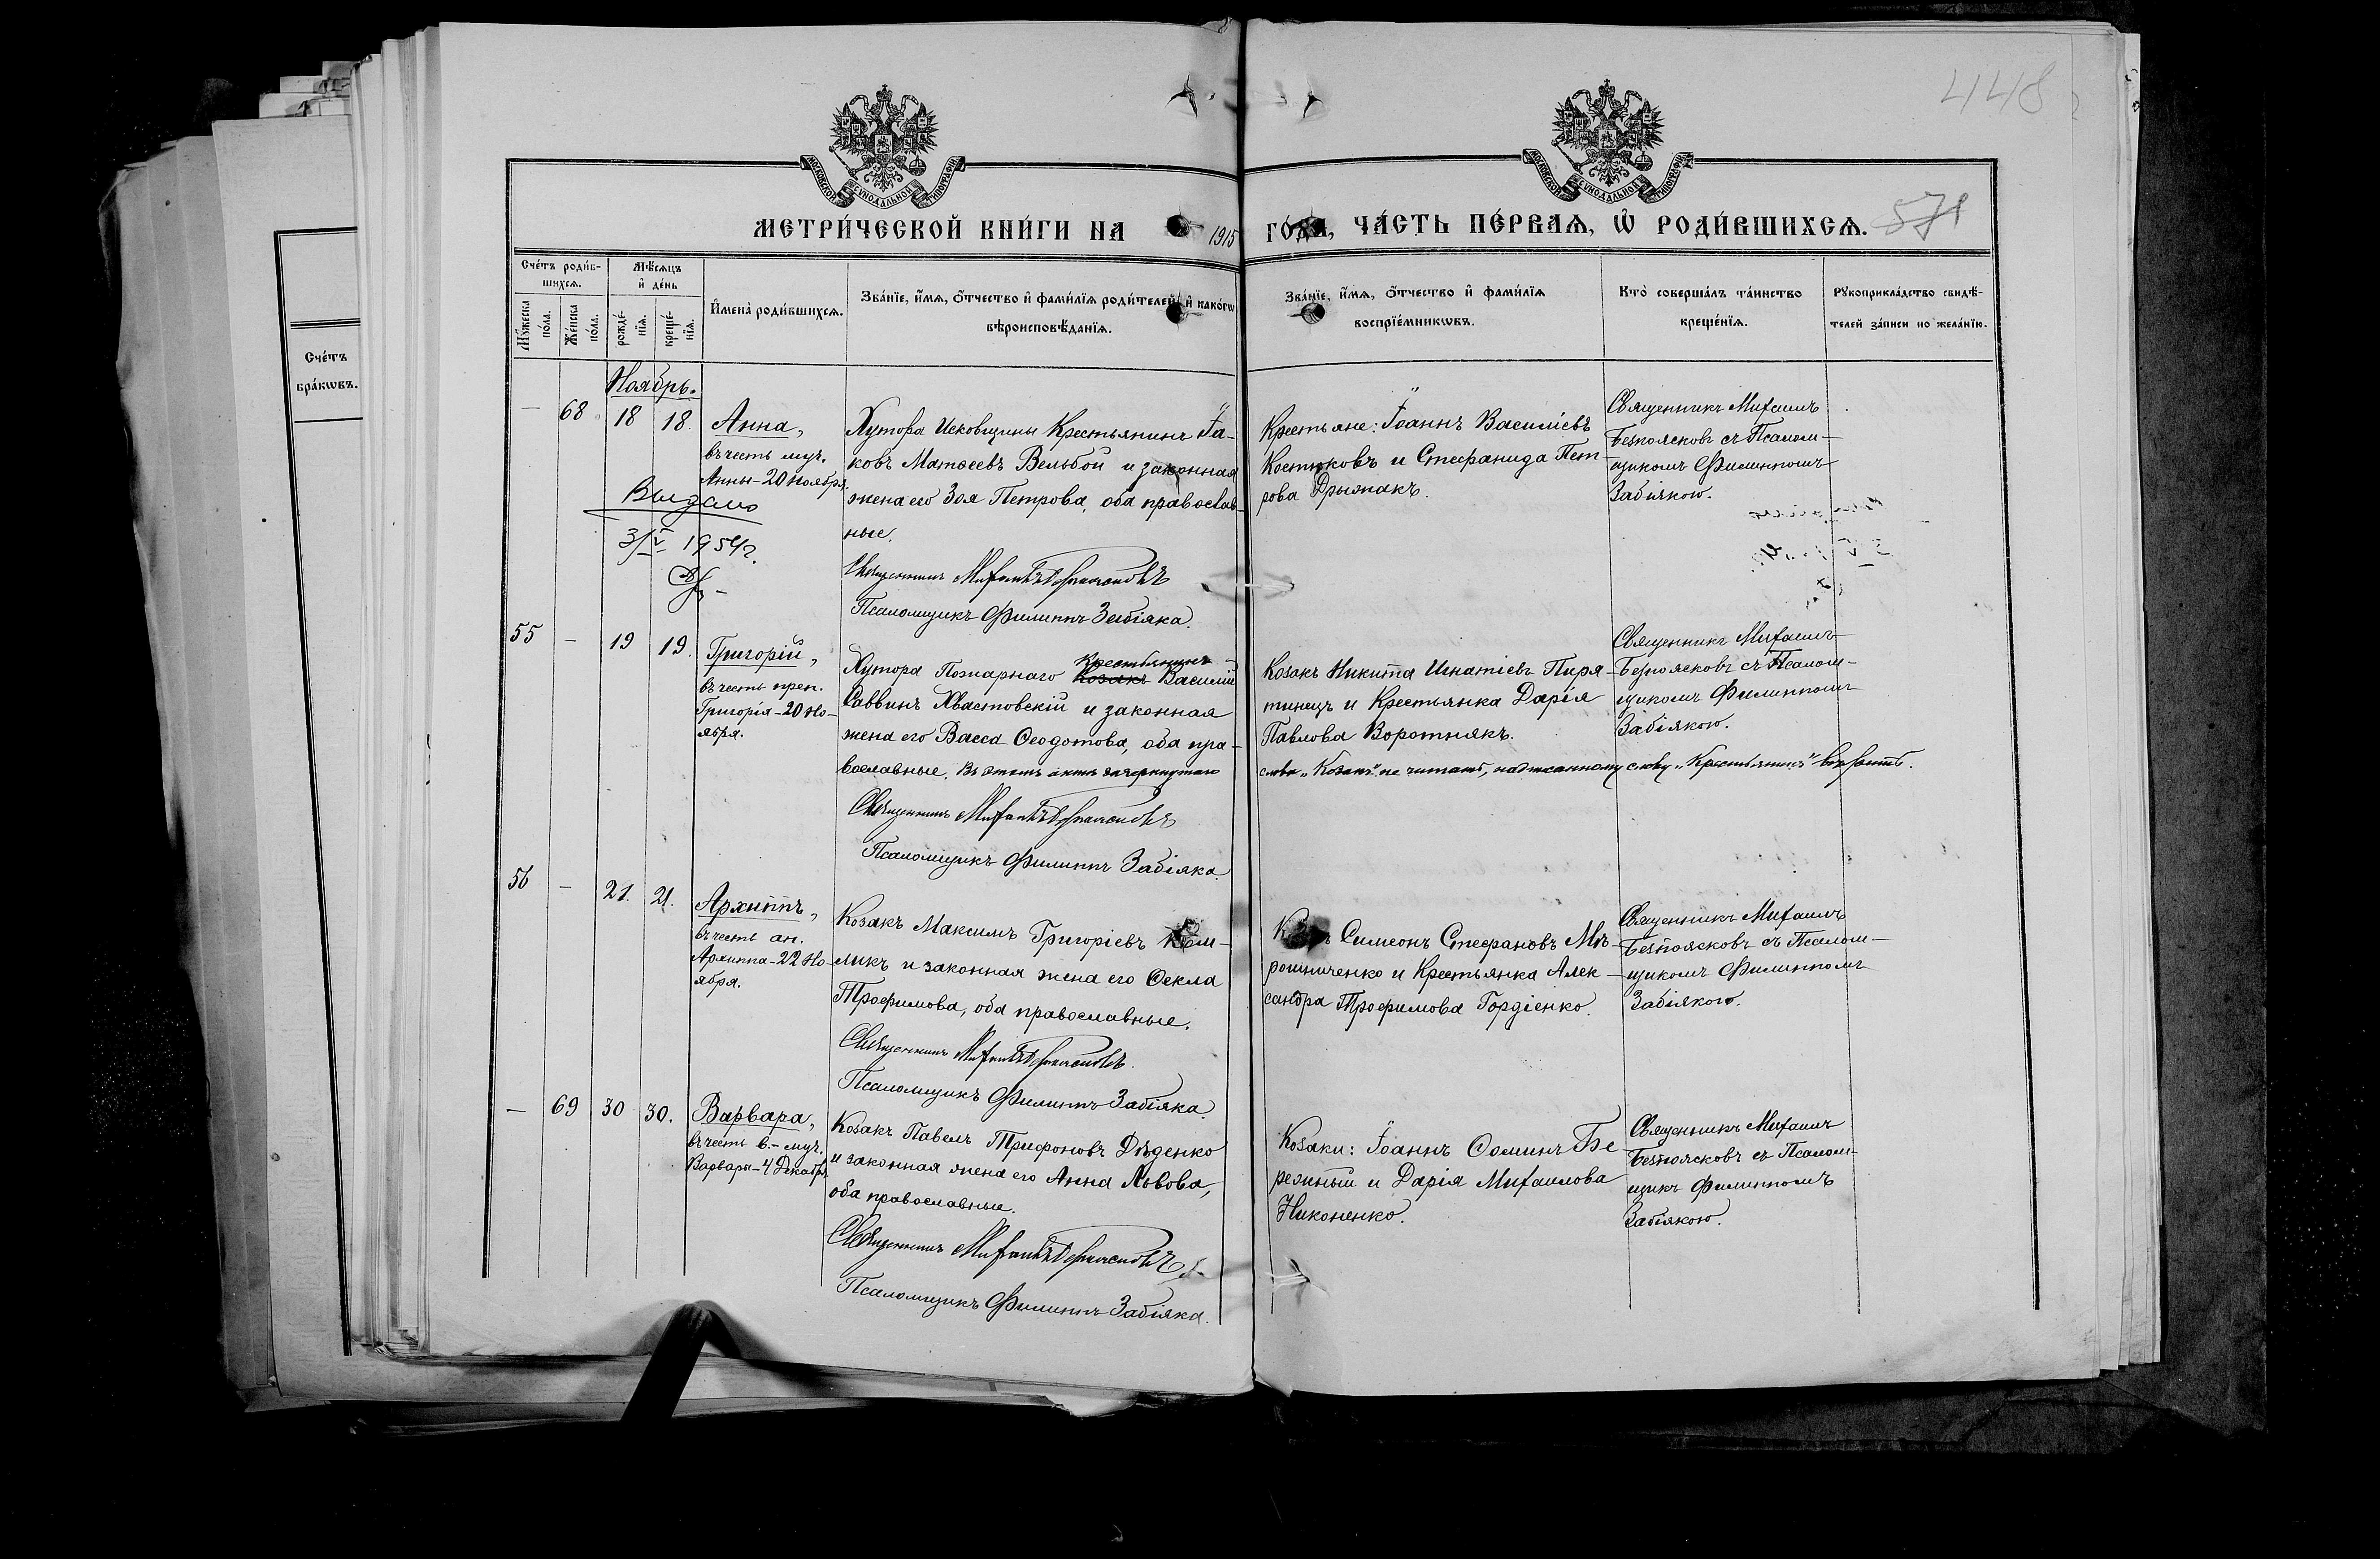 448
571
МОСКОВСКОЙ СѴНОДАЛЬНОЙ ТИПОГРАФІИ
МОСКОВСКОЙ СѴНОДАЛЬНОЙ ТИПОГРАФІИ
МЕТРИ́ЧЕСКОЙ КНИ́ГИ НА 1915 ГО́ДА, ЧА́СТЬ ПЕ́РВАѦ, Ѡ҆ РОДИ́ВШИХСѦ.
Сче́тъ роди́в-
шихсѧ.
Мꙋ́жеска
по́ла.
Же́нска
по́ла.
Мѣ́сѧцъ
и҆ де́нь
рожде́-
нїѧ.
креще́-
нїѧ.
И҆мена̀ роди́вшихсѧ.
Зва́нїе, и҆́мѧ, ѻ҆́тчество и҆ фами́лїѧ роди́телей, и҆ како́гѡ
вѣроисповѣ́данїѧ.
Зва́нїе, и҆́мѧ, ѻ҆́тчество и҆ фами́лїѧ
воспрїе́мникѡвъ.
Кто̀ соверша́лъ та́инство
креще́нїѧ.
Рꙋкоприкла́дство свидѣ́-
телей за́писи по жела́нїю.
Сче́тъ
бра́кѡвъ.
Ноябрь.
— 68 18 18.
Анна,
въ честь муч.
Анны - 20 Ноября.
Выдано
3/V 1954 г.
Хутора Исковщины Крестьянинъ Іа-
ковъ Матѳеевъ Вельбой и законная
жена его Зоя Петрова, оба православ-
ные.
Священникъ Михаилъ Безпоясковъ
Псаломщикъ Филиппъ Забіяка.
Крестьяне: Іоаннъ Василіевъ
Костюковъ и Стефанида Пет-
рова Дрыжакъ.
Священникъ Михаилъ
Безпоясковъ съ Псалом-
щикомъ Филиппомъ
Забіякою.
55 — 19 19.
Григорій,
въ честь преп.
Григорія - 20 Но-
ября.
Крестьянинъ
Хутора Пожарнаго Козакъ Василій
Саввинъ Хвастовскій и законная
жена его Васса Ѳеодотова, оба пра-
вославные. Въ этомъ актѣ зачеркнутаго
Священникъ Михаилъ Безпоясковъ
Псаломщикъ Филиппъ Забіяка.
Козакъ Никита Игнатіевъ Пиря-
тинецъ и Крестьянка Дарія
Павлова Воротнякъ.
слова "Козакъ" не читать, надписанному слову "Крестьянинъ" вѣрить.
Священникъ Михаилъ
Безпоясковъ съ Псалом-
щикомъ Филиппомъ
Забіякою.
56 — 21. 21.
Архиппъ,
въ честь ап.
Архиппа - 22 Но-
ября.
Козакъ Максимъ Григоріевъ
ликъ и законная жена его Ѳекла
Трофимова, оба православные.
Священникъ Михаилъ Безпоясковъ
Псаломщикъ Филиппъ Забіяка.
Козакъ Симеонъ Стефановъ Мѣ-
рошниченко и Крестьянка Алек-
сандра Трофимова Гордіенко.
Священникъ Михаилъ
Безпоясковъ съ Псалом-
щикомъ Филиппомъ
Забіякою.
— 69 30 30.
Варвара,
въ честь в.-муч.
Варвары - 4 Декабр.
Козакъ Павелъ Трифоновъ Дѣденко
и законная жена его Анна Львова,
оба православные.
Священникъ Михаилъ Безпоясковъ
Псаломщикъ Филиппъ Забіяка.
Козаки: Іоаннъ Ѳоминъ Бе-
резный и Дарія Михаилова
Никоненко.
Священникъ Михаилъ
Безпоясковъ съ Псалом-
щикъ Филиппомъ
Забіякою.